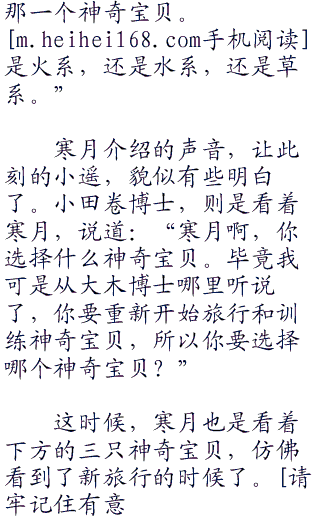 那一个神奇宝贝。
[m.heihei168.com手机阅读]
是火系，还是水系，还是草
系。”
寒月介绍的声音，让此
刻的小遥，貌似有些明白
了。小田卷博士，则是看着
寒月，说道：“寒月啊，你
选择什么神奇宝贝。毕竟我
可是从大木博士哪里听说
了，你要重新开始旅行和训
练神奇宝贝，所以你要选择
哪个神奇宝贝？”
这时候，寒月也是看着
下方的三只神奇宝贝，仿佛
看到了新旅行的时候了。[请
牢记住有意